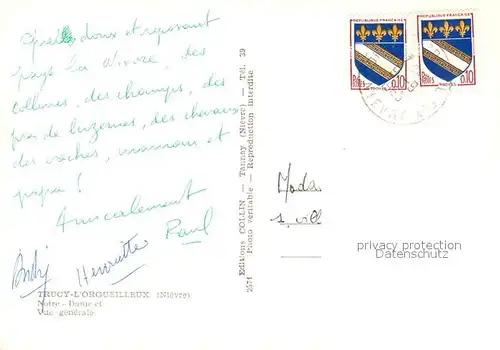 Quel doux et reposant
pays La Nièvre, des
collines, des champs, des
prés de luzernes, des chevaux
des vaches, mamans et
papa !
Amicalement
Paul
Henriette
TRUCY-L'ORGUEILLEUX (Nièvre)
Notre - Dame et
Vue générale
2571 Editions COLLIN — Tannay (Nièvre) — Tél. 39
Photo véritable — Reproduction interdite
REPUBLIQUE FRANÇAISE
POSTES 0,10
TROYES
REPUBLIQUE FRANÇAISE
POSTES 0,10
TROYES
privacy protection
Datenschutz